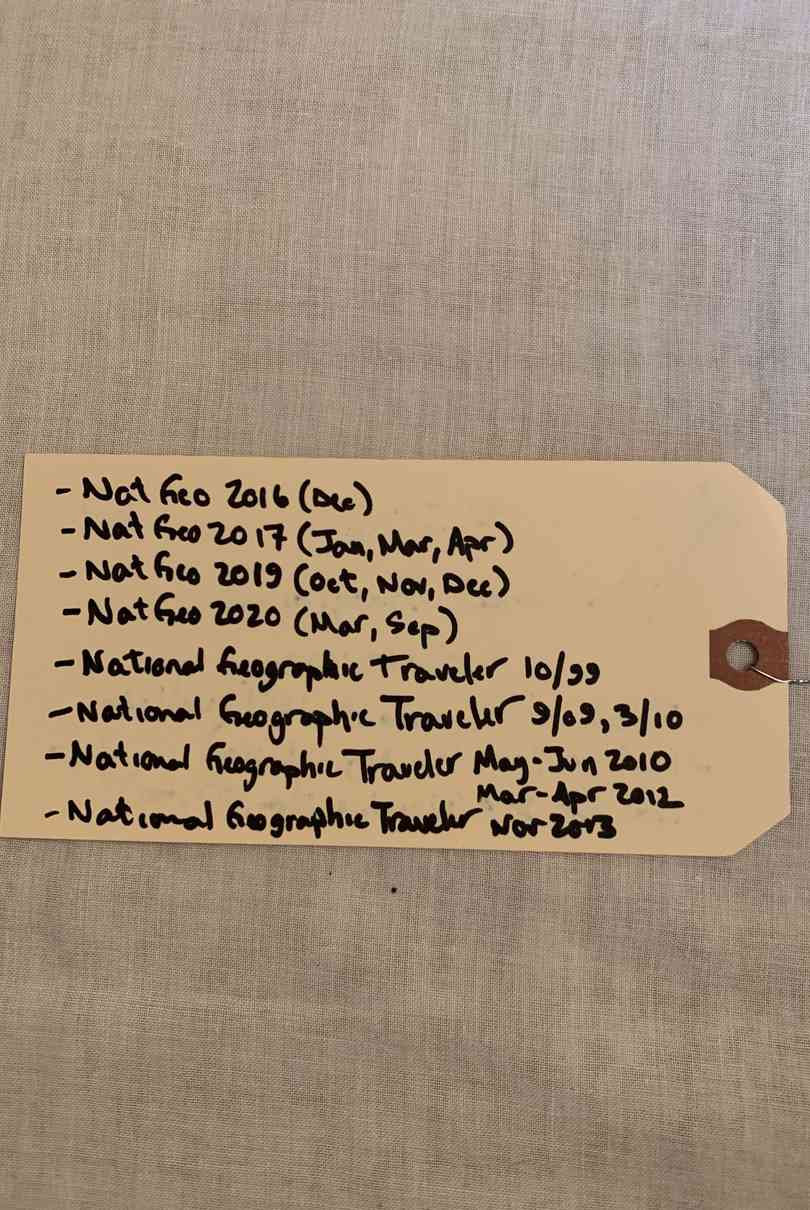 - Nat Geo 2016 (Dec)
- Nat Geo 2017 (Jan, Mar, Apr)
- Nat Geo 2019 (Oct, Nov, Dec)
- Nat Geo 2020 (Mar, Sep)
- National Geographic Traveler 10/99
- National Geographic Traveler 9/09, 3/10
- National Geographic Traveler May-Jun 2010
Mar-Apr 2012
- National Geographic Traveler Nov 2013